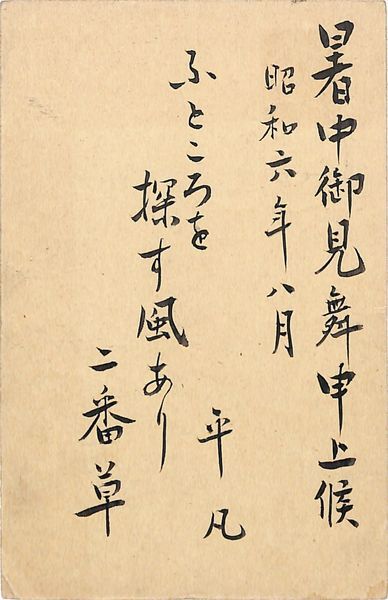 暑中御見舞申上候
昭和六年八月
ふところを
探す風あり
二番草
平凡